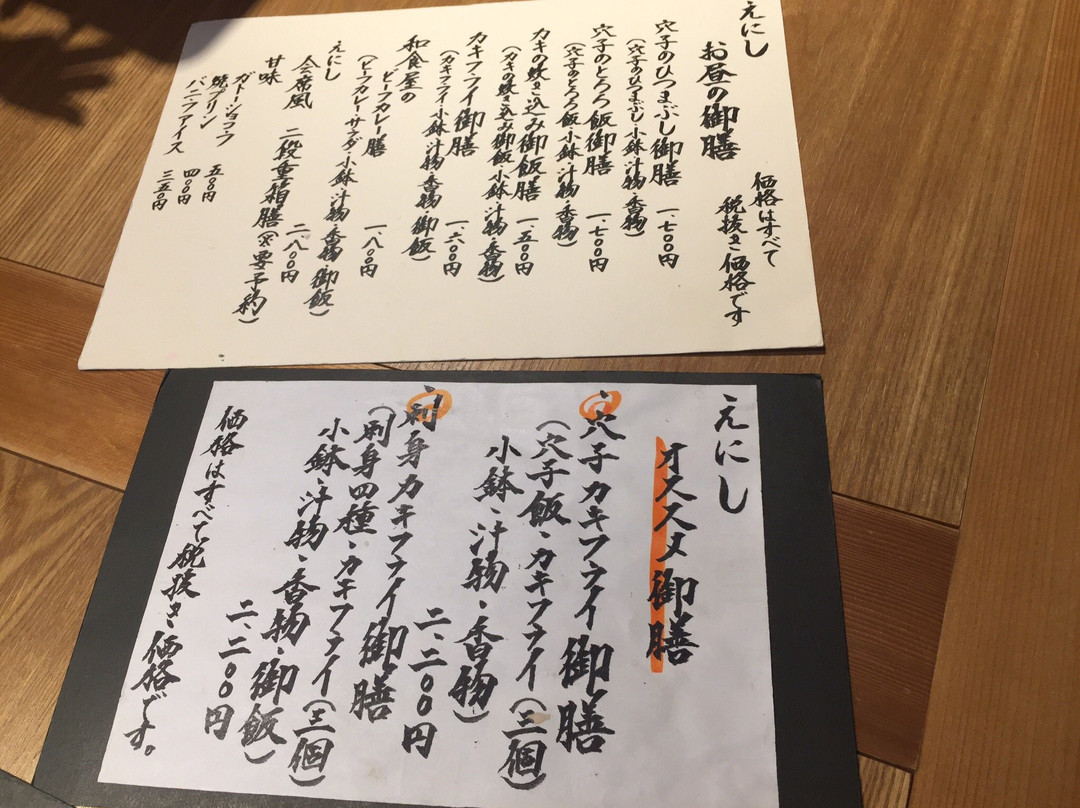 えにし
お昼の御膳
価格はすべて
税抜き価格です
穴子のひつまぶし御膳 一、七〇〇円
(穴子のひつまぶし・小鉢・汁物・香物)
穴子のとろろ飯御膳 一、七〇〇円
(穴子のとろろ飯・小鉢・汁物・香物)
カキの炊き込み御飯膳 一、五〇〇円
(カキの炊き込み御飯・小鉢・汁物・香物)
カキフライ御膳 一、六〇〇円
(カキフライ・小鉢・汁物・香物・御飯)
和食屋の
ビーフカレー膳 一、八〇円
(ビーフカレー・サラダ・小鉢・汁物・香物・御飯)
えにし
会席風 二段重箱膳(※要予約)
二、八〇〇円
甘味
ガトーショコラ 五〇〇円
焼プリン 四〇〇円
バニラアイス 三五〇円
えにし
オススメ御膳
穴子カキフライ御膳
(穴子飯・カキフライ(三個)
小鉢・汁物・香物)
二、二〇〇円
刺身カキフライ御膳
(刺身四種・カキフライ(三個)
小鉢・汁物・香物・御飯)
二、二〇〇円
価格はすべて税抜き価格です。